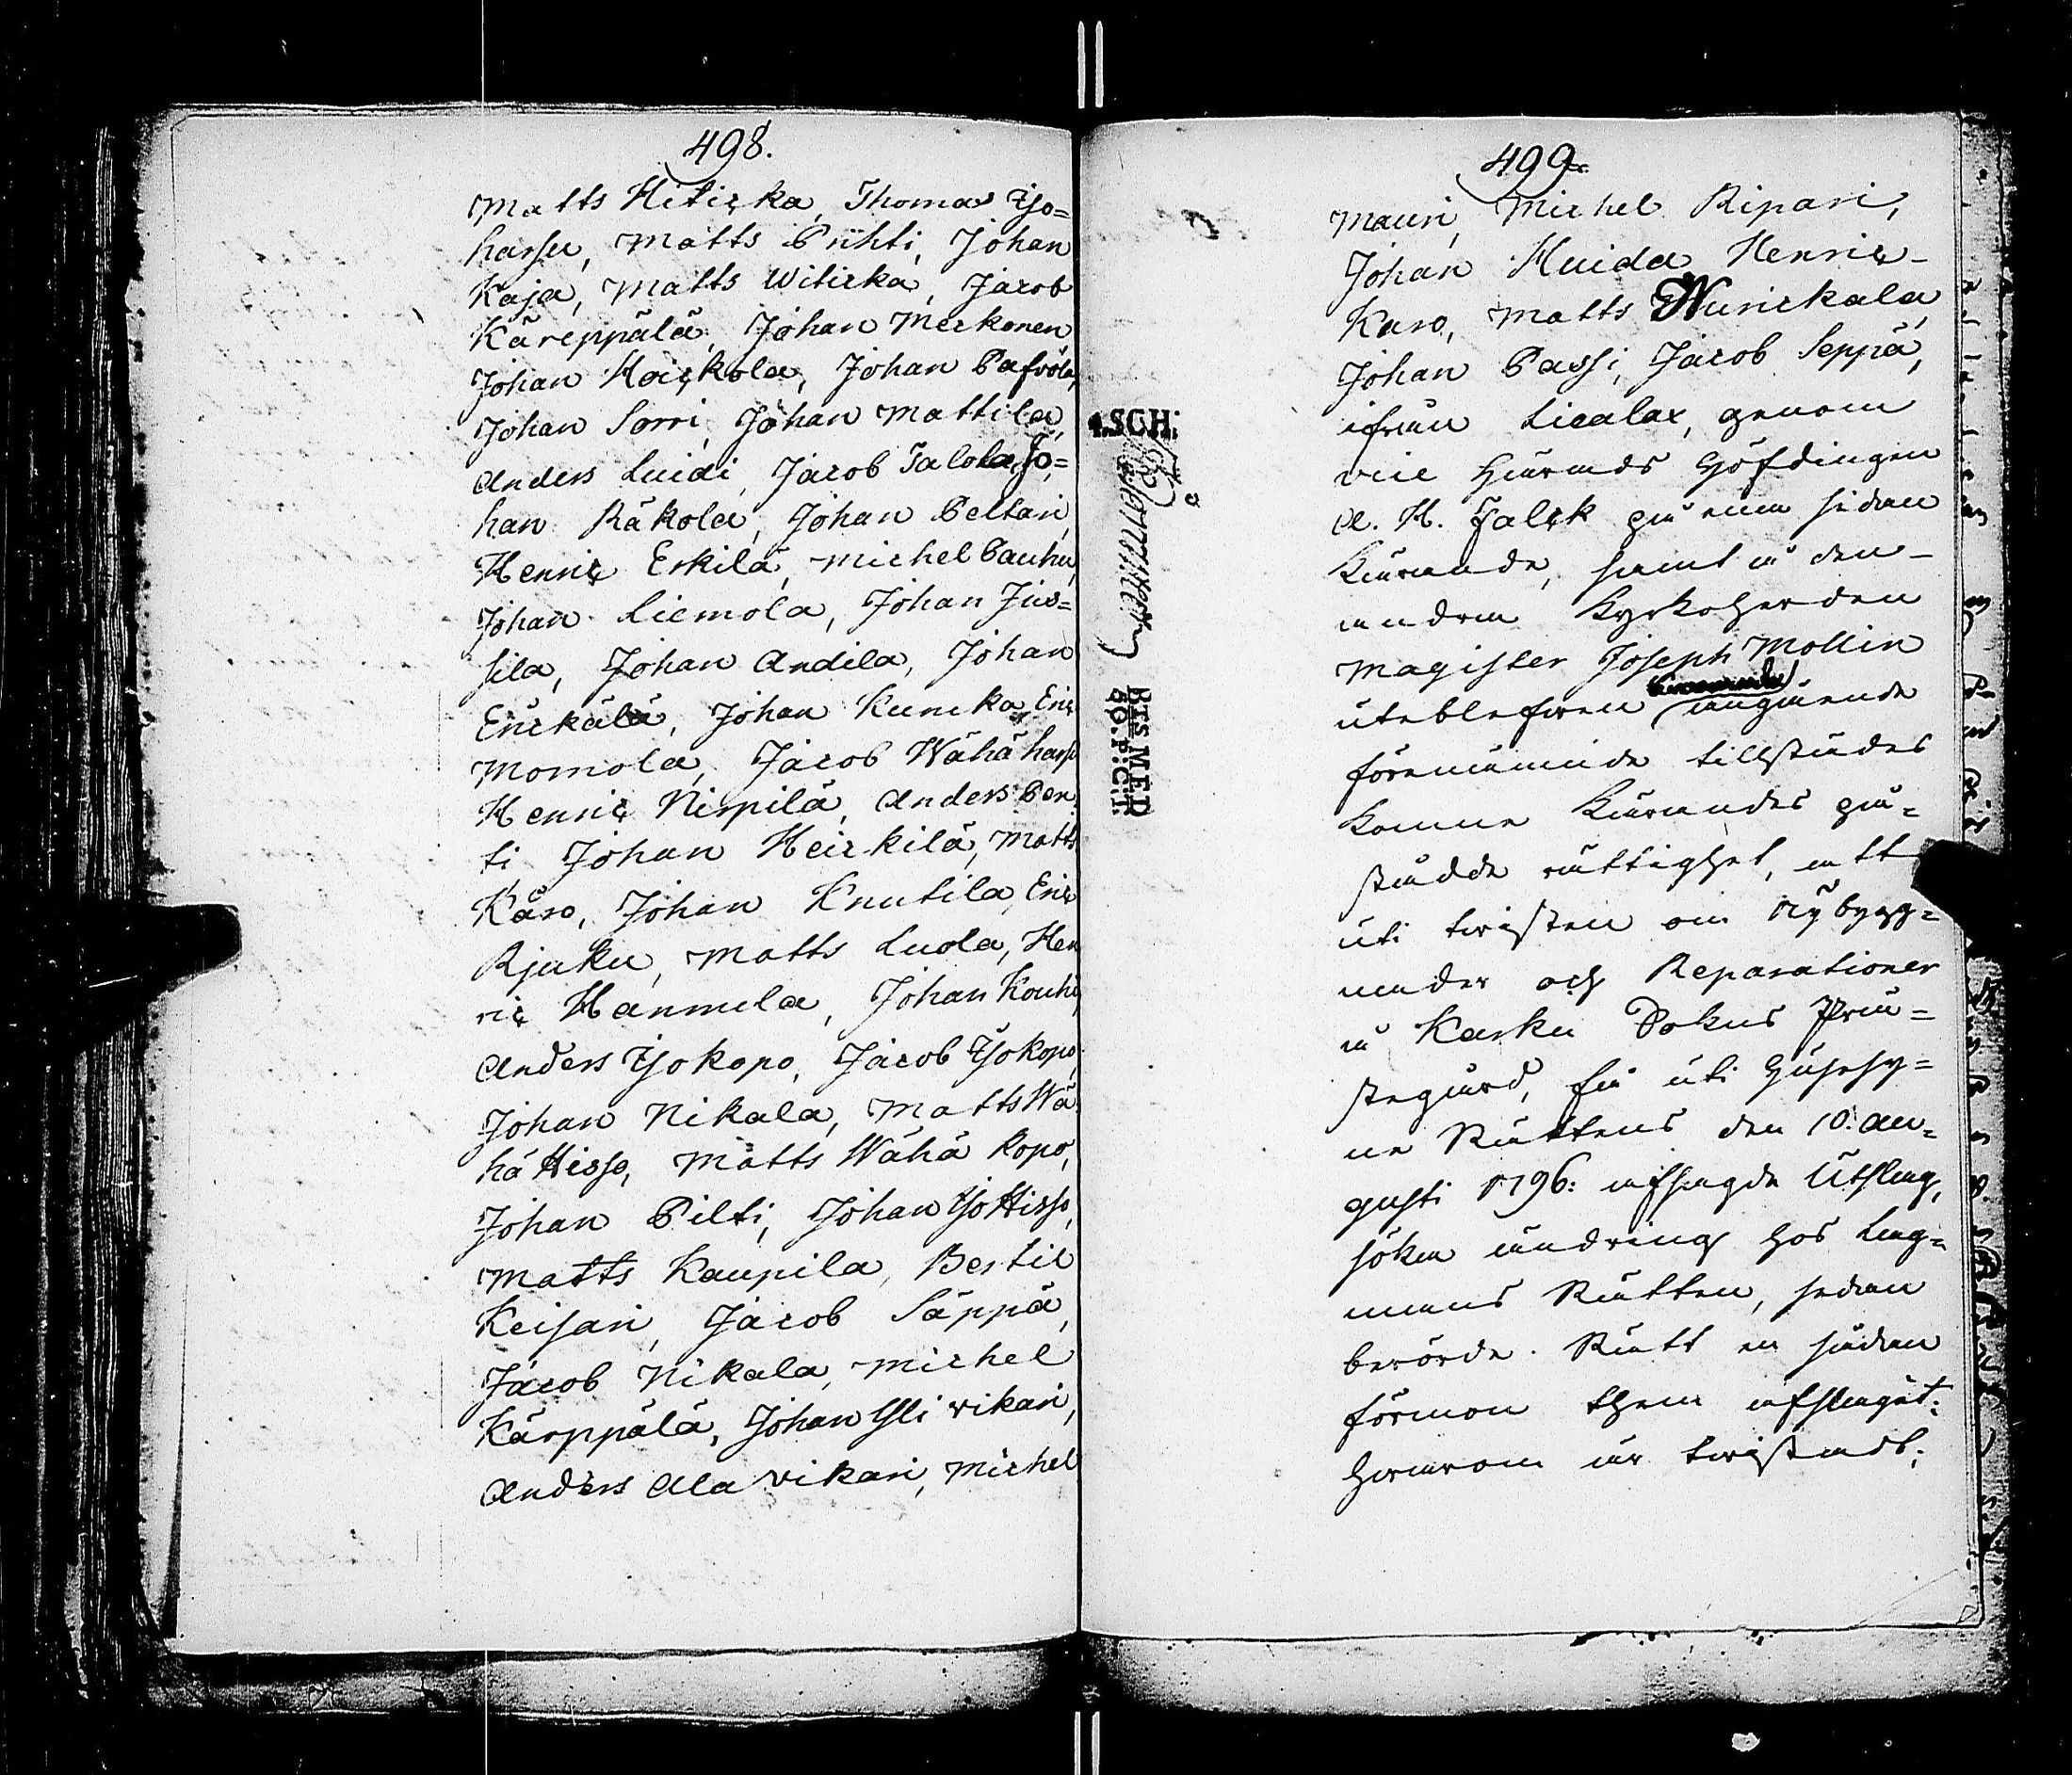 498.
Matts Hiticka, Thomas Yjo=
harju, Matts Prihti, Johan
Kaja, Matts Witicka, Jacob
Käreppälä, Johan Merkonen,
Johan Hoickola, Johan Pafvola,
Johan Sorri, Johan Mattila,
Anders Luidi, Jacob Talola, Jo=
han Räkola, Johan Peltari,
Henric Erkilä, Michel Pauhu,
Johan Liemola, Johan Jus=
sila, Johan Andila, Johan
Erickälä, Johan Kuncka, Eric
Momola, Jacob Wähä harju
Henric Nirpilä, Anders Pen
ti Johan Heickilä, Matts
Käro, Johan Knutila, Eric
Rjuku, Matts Luola, Hen
ric Hannula, Johan Kouhi,
Anders Yjokopo, Jacob Yjokopo,
Johan Nikala, Matts Wä
hä Hisso, Matts Wähä Kopo,
Johan Pilti, Johan Yjo Hisso,
Matts Kaupila, Bertil
Keisari, Jacob Säppä,
Jacob Nikala, Michel
Kärppälä, Johan Yli vikari,
Anders Ala vikari, Michel
499.
Mauri, Michel Ripari,
Johan Huida Henric
Karo, Matts Wurickala,
Johan Passi, Jacob Seppä,
ifrån Licalax, genom
vice Härads Höfdingen
A. H. Falck på ena sidan
Kärande, samt å den
andra Kyrkoherden
Magister Joseph Mollin
uteblefven angående
förenämnde tillstädes
komne Kärandes på=
stådde rättighet, att
uti twisten om Nybygg=
nader och Reparationer
å Karku Sokns Prä=
stegård, få uti Husesy=
ne Rättens den 10. Au=
gusti 1796: afsagde Utslag,
söka ändring hos Lag=
mans Rätten, sedan
berörde Rätt en sådan
förmon them afslagit:
hvarom är twistadt;
4.SCH:
BTS MED
40.P:C:T: